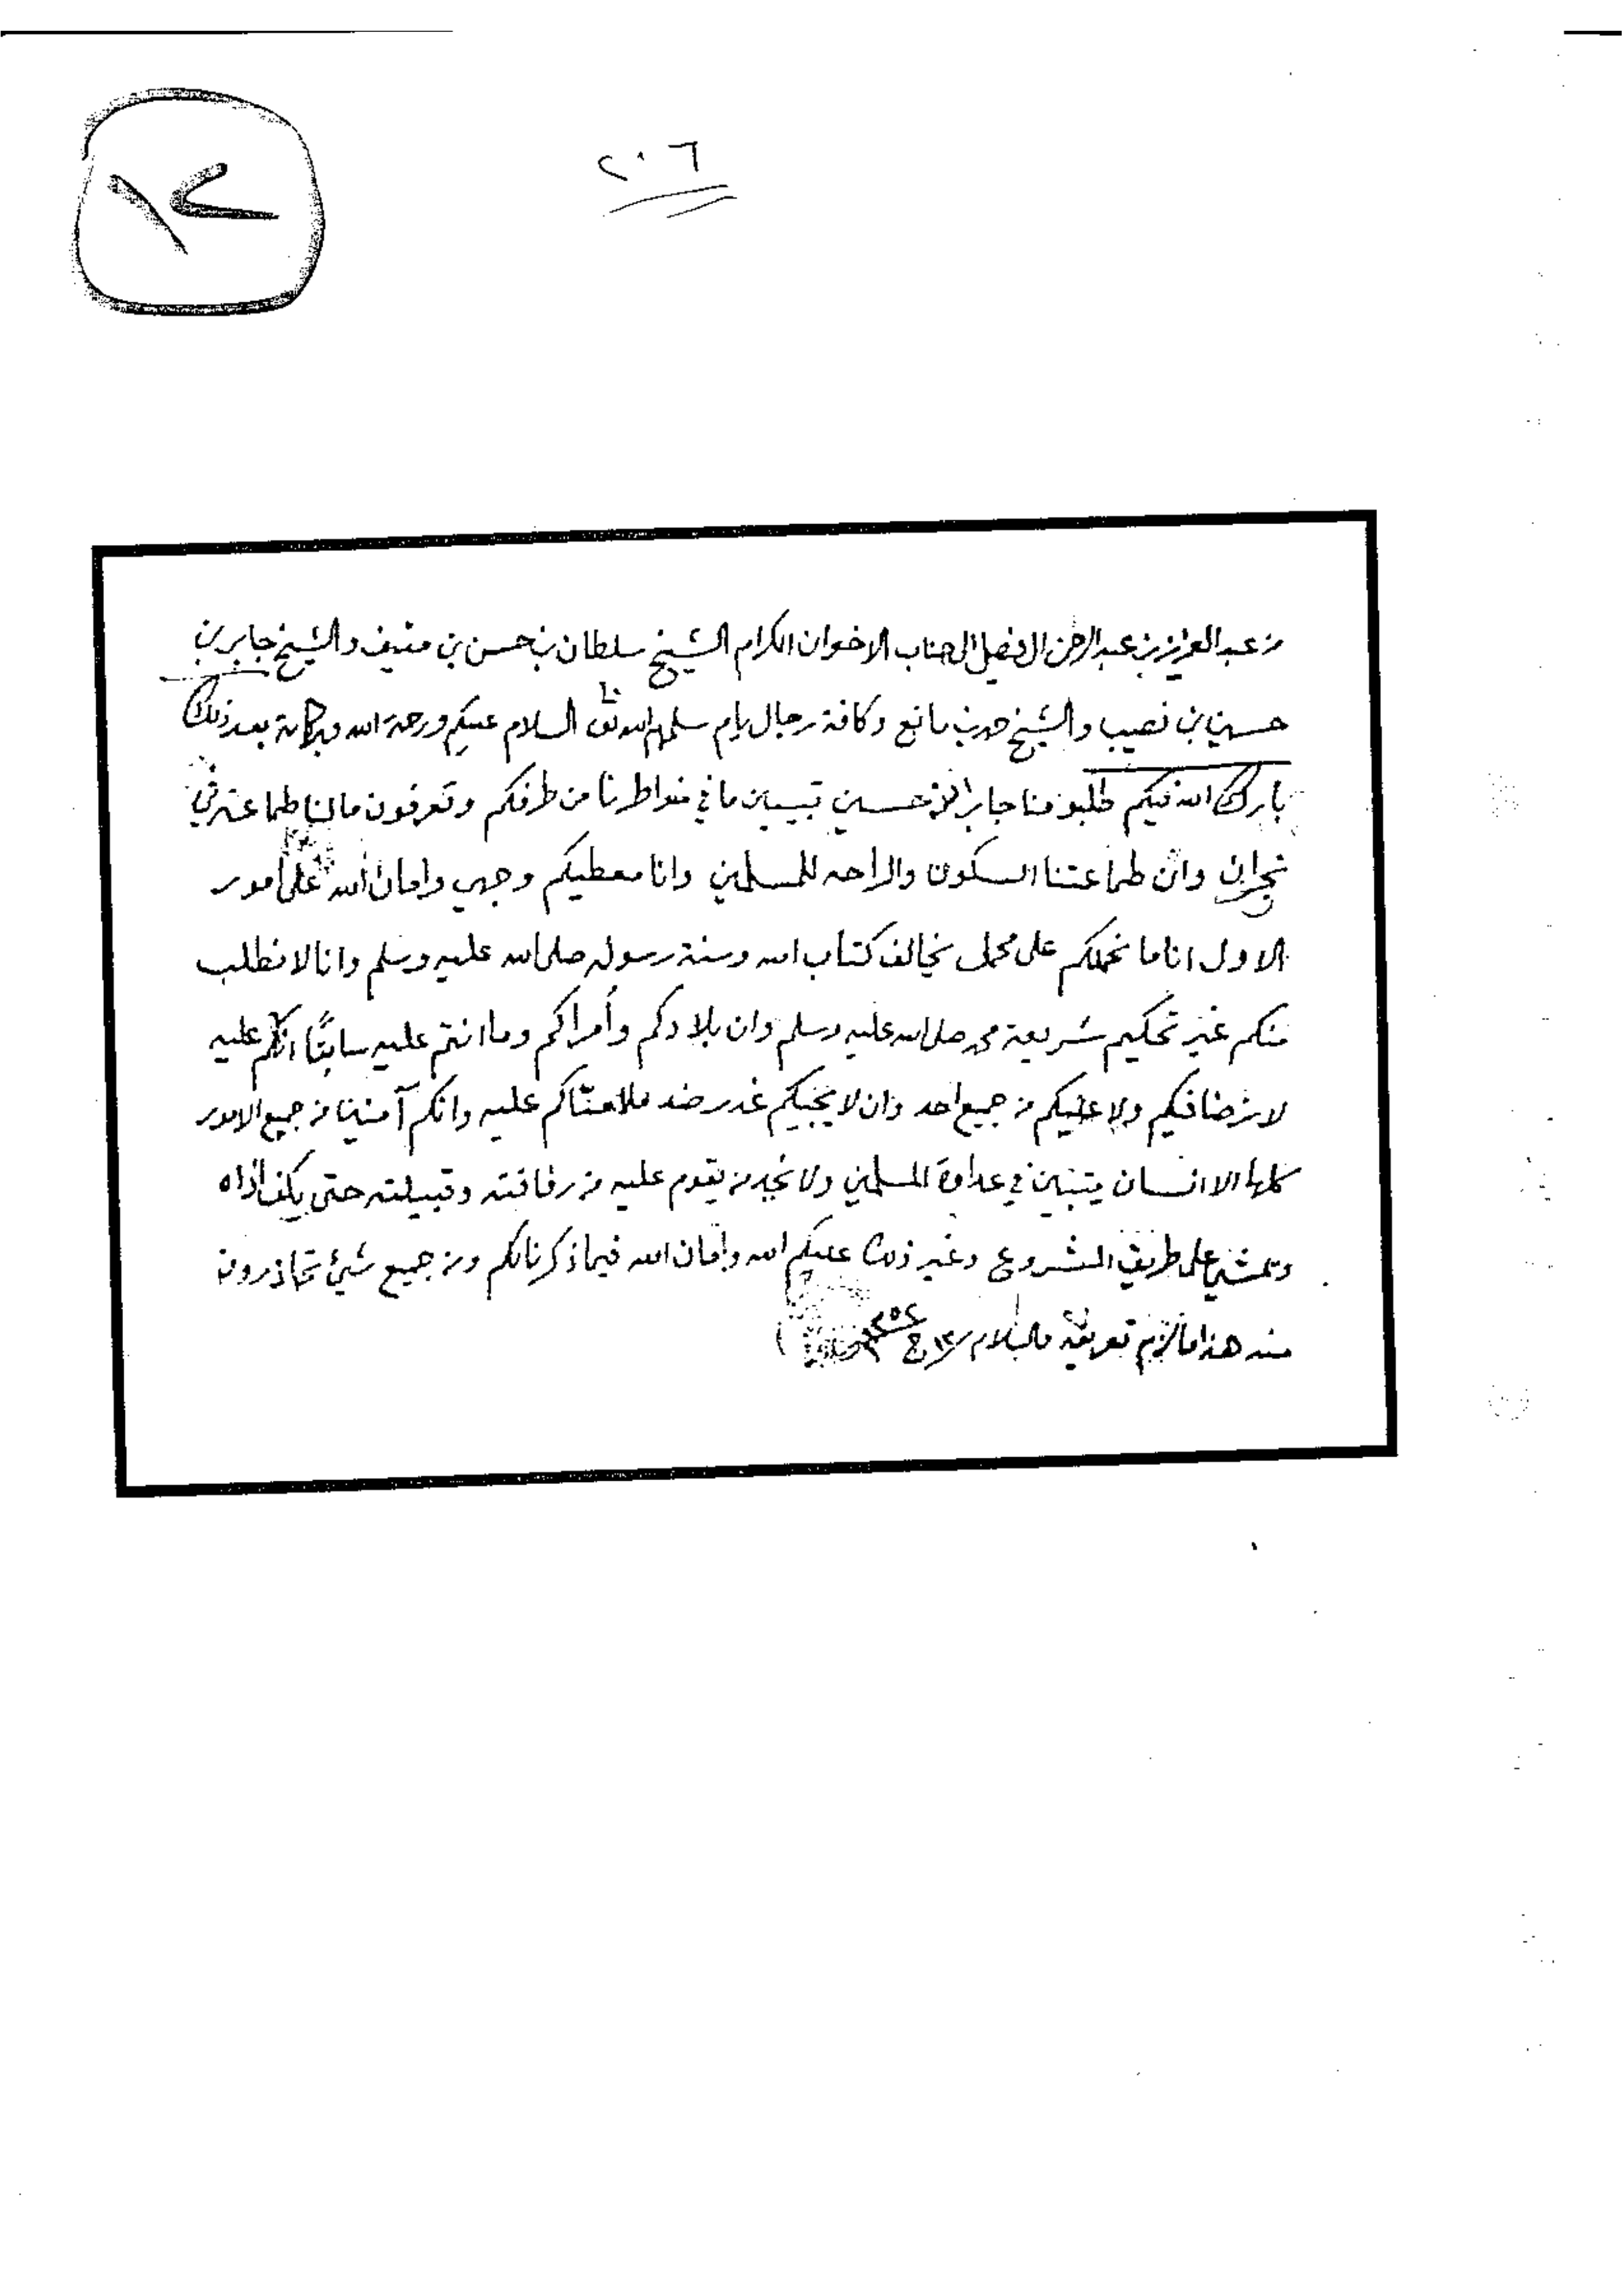 ١٢
٢٠٦
من عبد العزيز بن عبد الرحمن ال فيصل الى جناب الاخوان الكرام الشيخ سلطان بن حسن بن منيف والشيخ جابر بن
حسين بن نصيب والشيخ حمد بن مانع وكافة رجال يام سلمهم الله تعالى السلام عليكم ورحمة الله وبركاته بعد ذلك
بارك الله فيكم طلبو منا جابر حسين تبيين ما في خواطرنا من طرفكم وتعرفون مالنا طماعتر في
نجران وان طماعتنا السكون والراحه للمسلمين وانا معطيكم وجهي وامان الله على امور
الاول انا ما نحملكم على محمل يخالف كتاب الله وسنة رسوله صلى الله عليه وسلم وانا لا نطلب
منكم غير تحكيم شريعة محمد صلى الله عليه وسلم وان بلادكم وأمراكم وما انتم عليه سابقًا انكم عليه
لا نرضا فيكم ولا عليكم من جميع احد وان لا يجيكم غدر ضد عليه وانكم آمنين من جميع الامور
كلها الا انسان يتبين في عداوة المسلمين ولا نجد من يقوم عليه من رفاقته وقبيلته حتى يكف اذاه
وتمشي على طريق المشروع وغير ذلك عليكم الله وامان الله فيما ذكرنا لكم ومن جميع شيئ تحاذرون
منه هذا ما لزم تعريفه والسلام